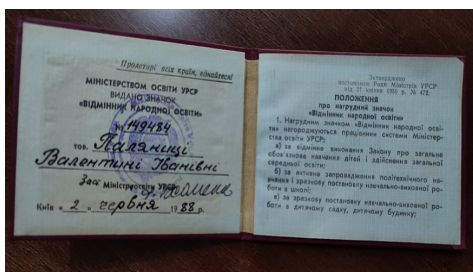 Пролетарі всіх країн, єднайтеся!
МІНІСТЕРСТВОМ ОСВІТИ УРСР
ВИДАНО ЗНАЧОК
«ВІДМІННИК НАРОДНОЇ ОСВІТИ»
№ 149484
тов. Паляниці
Валентині Іванівні
Зас Міністр освіти УРСР
Київ « 2 » червня 1988 р.
Затверджено
постановою Ради Міністрів УРСР
від 27 квітня № 472.
ПОЛОЖЕННЯ
про нагрудний значок
«Відмінник народної освіти»
1. Нагрудним значком «Відмінник народної осві-
ти» нагороджуються працівники системи Міністер-
ства освіти УРСР:
а) за відмінне виконання Закону про загальне
обов'язкове навчання дітей і здійснення загальної
середньої освіти;
б) за активне запровадження політехнічного на-
вчання і зразкову постановку навчально-виховної ро-
боти в школі;
в) за зразкову постановку навчально-виховної ро-
боти в дитячому садку, дитячому будинку;